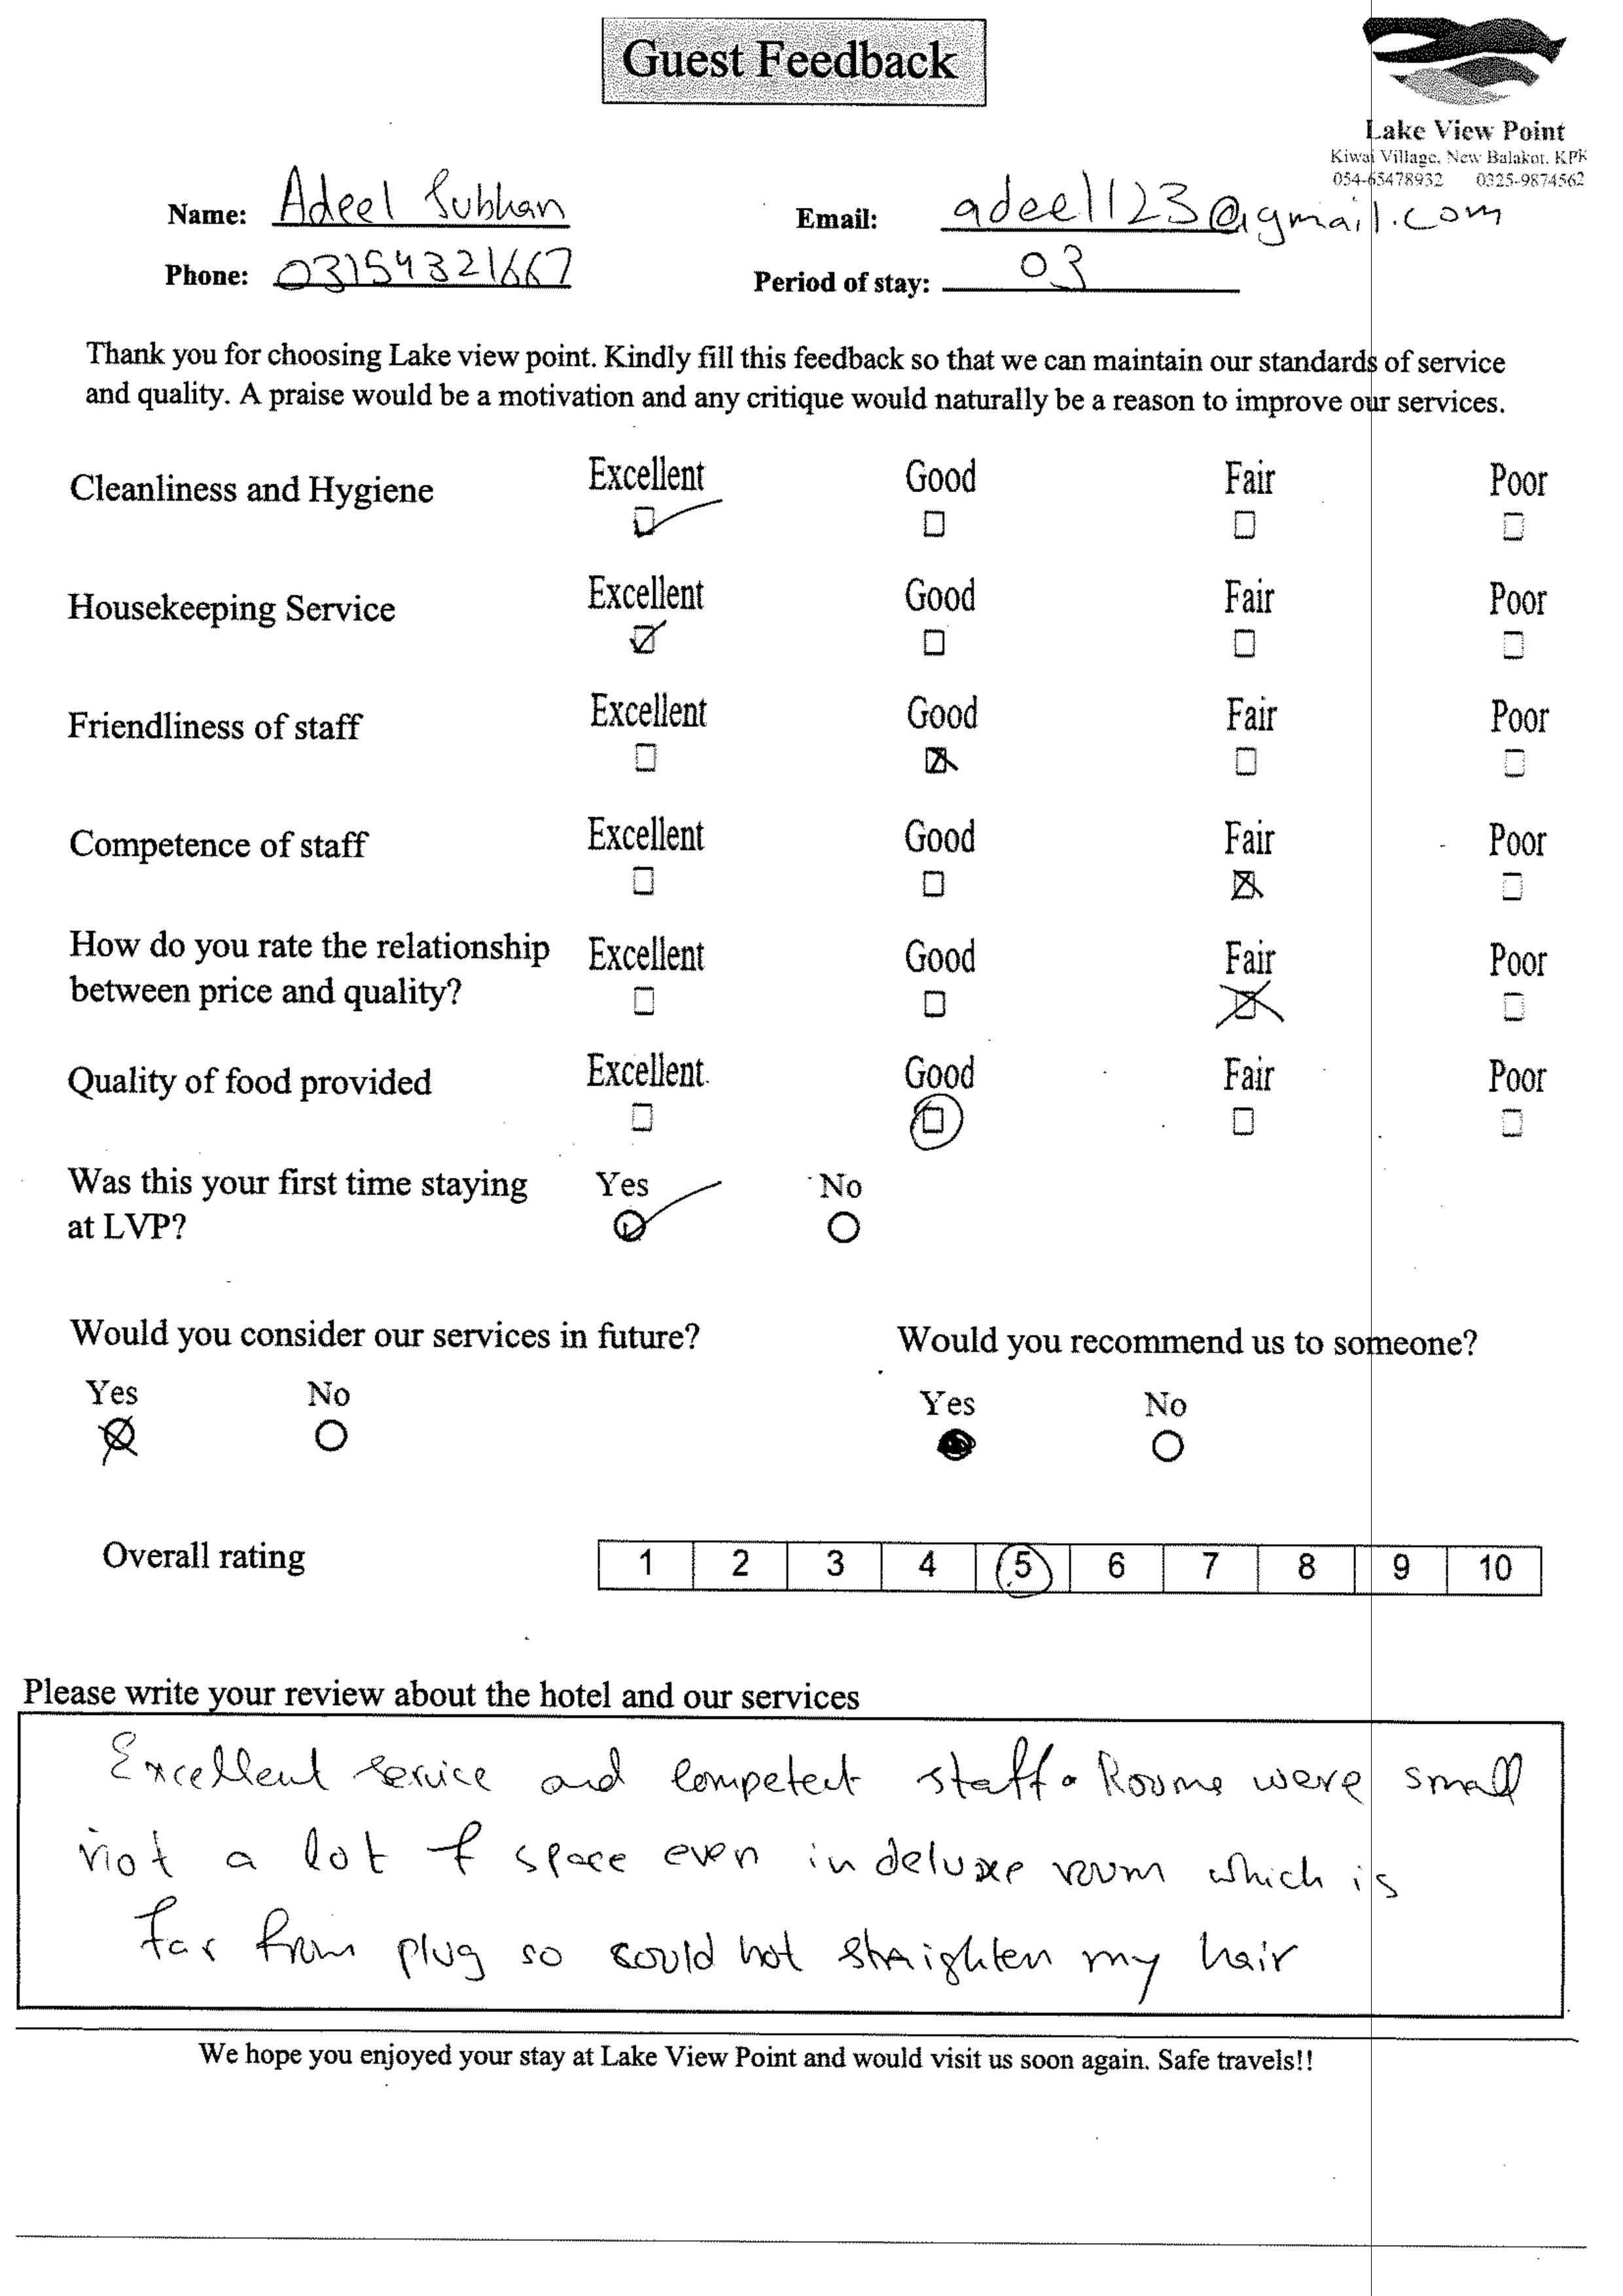 Guest Feedback
Lake View Point
Kiwai Village, New Balakot, KPK
054-65478932 0325-9874562
Name: Adeel Subhan
Email: adeel123@gmail.com
Phone: 03154321667
Period of stay: 03
Thank you for choosing Lake view point. Kindly fill this feedback so that we can maintain our standards of service
and quality. A praise would be a motivation and any critique would naturally be a reason to improve our services.
Cleanliness and Hygiene Excellent Good Fair Poor
Housekeeping Service Excellent Good Fair Poor
Friendliness of staff Excellent Good Fair Poor
Competence of staff Excellent Good Fair Poor
How do you rate the relationship
between price and quality? Excellent Good Fair Poor
Quality of food provided Excellent Good Fair Poor
Was this your first time staying
at LVP? Yes No
Would you consider our services in future?
Yes No
Would you recommend us to someone?
Yes No
Overall rating 1 2 3 4 5 6 7 8 9 10
Please write your review about the hotel and our services
Excellent service and competent staff. Rooms were small
not a lot of space even in deluxe room which is
far from plug so could not straighten my hair
We hope you enjoyed your stay at Lake View Point and would visit us soon again. Safe travels!!